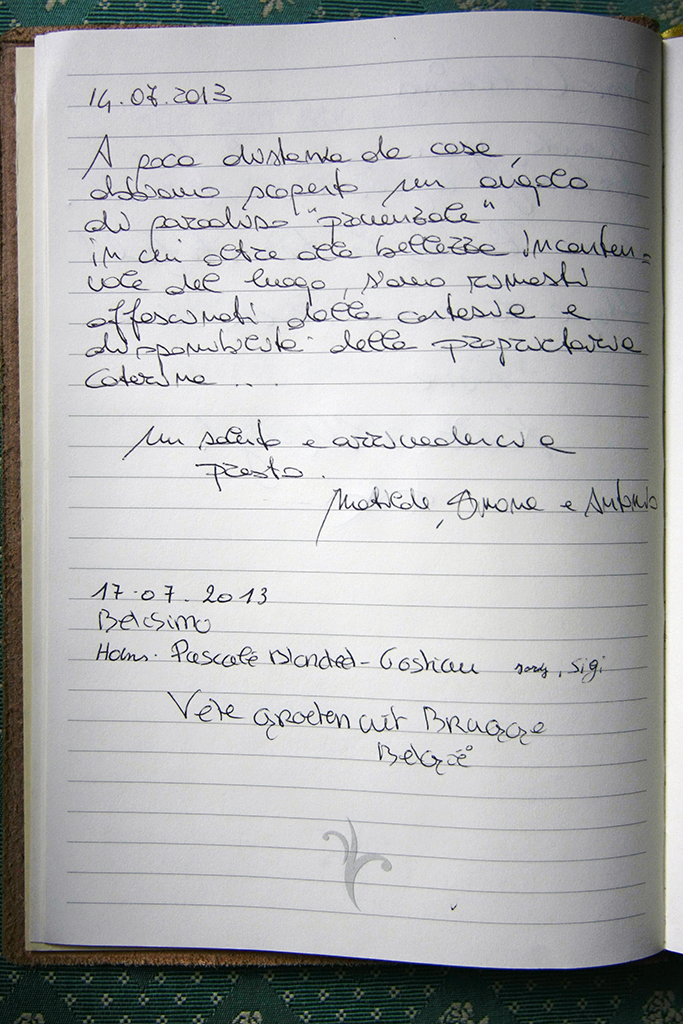 14.07.2013
A poca distanza da casa,
abbiamo scoperto un angolo
di paradiso "provenzale"
in cui oltre alla bellezza incante=
vole del luogo, siamo rimasti
affascinati dalla cortesia e
disponibilità della proprietaria
Caterina ...
Un saluto e arrivederci a
presto.
Matilde, Simona e Antonio
17.07.2013
Belissimo
Hans. Pascale Blondeel - , Sigi
Vele groeten uit Brugge
België